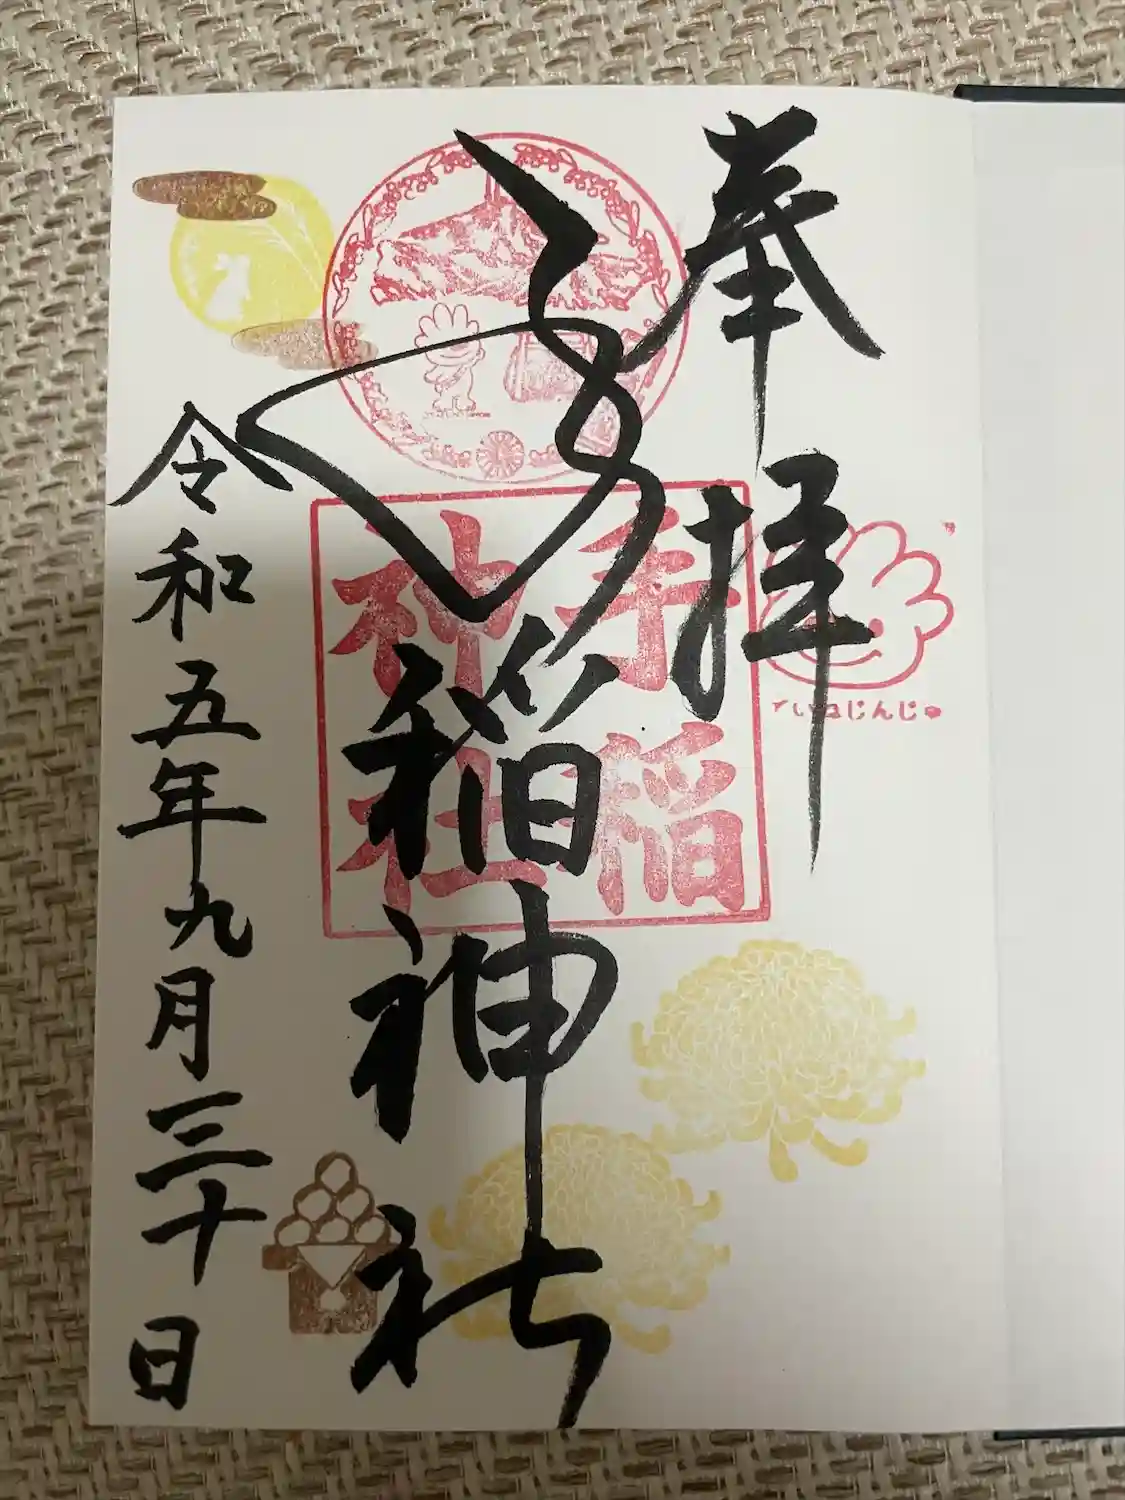 奉拝
手稲神社
令和五年九月三十日
手稲
神社
ていねじんじゃ